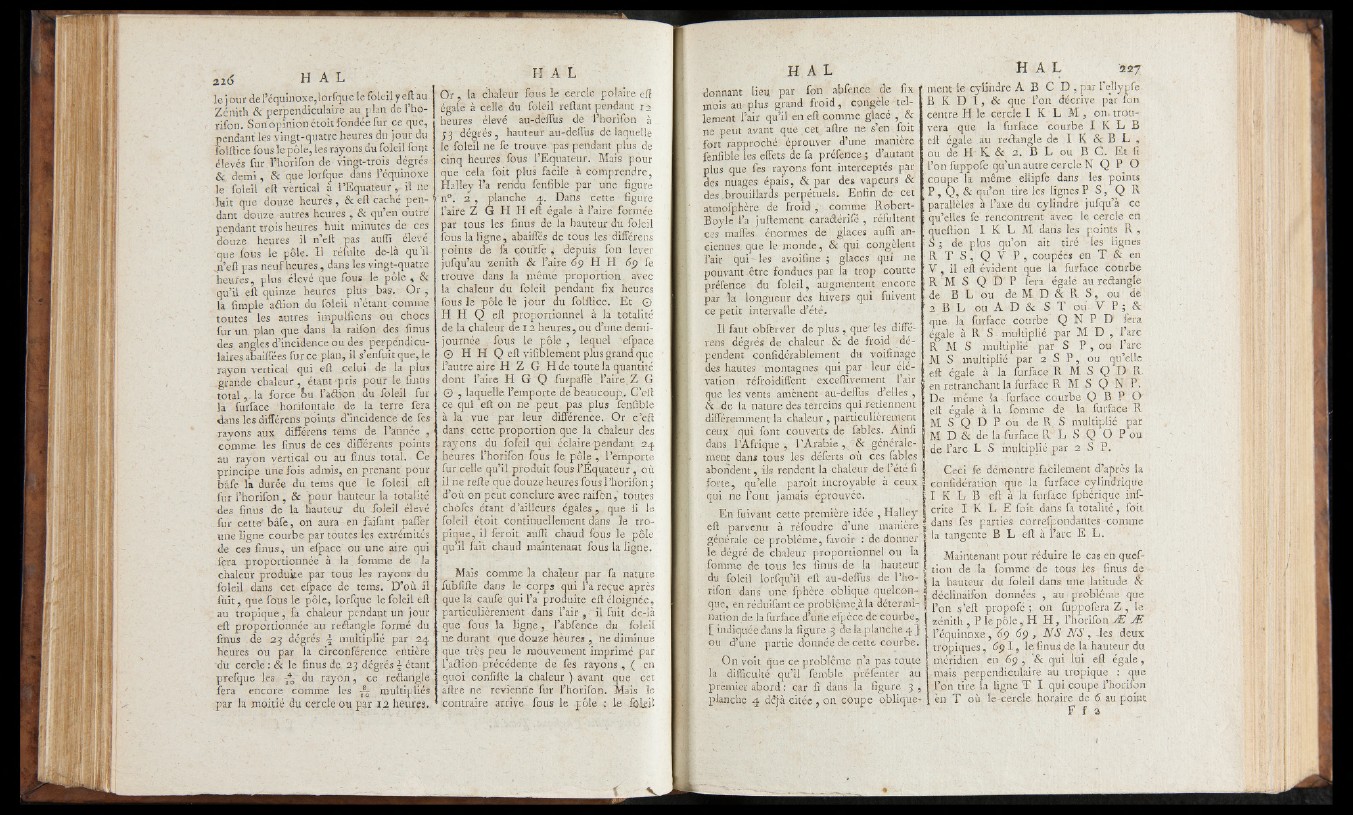 226 H A L
le jour de l'équinoxe, lorſque le ſoleil y eſt au
Zénith & perpendiculaire au plan de l'ho-
riſon. Son opinion étoit fondée ſur ce que,
pendant les vingt-quatre heures du jour du
ſolſtice ſous le pôle, les rayons du ſoleil ſont
élevés ſur l'horiſon de vingt-trois dégrés
& demi, & que lorſque dans l'équinoxe
le ſoleil eſt vertical à l'Equateur, il ne
luit que douze heures, & eſt caché pen-
dant douze autres heures, & qu'en outre
pendant trois heures huit minutes de ces
douze heures il n'eſt pas auſſi élevé
que ſous le pôle. Il réſulte de-là qu'il
n'eſt pas neuf heures, dans les vingt-quatre
heures, plus élevé que ſous le pôle, &
qu'il eſt quinze heures plus bas. Or,
la ſimple action du ſoleil n'étant comme
toutes les autres impulſions ou chocs
ſur un plan que dans la raiſon des ſinus
des angles d'incidence ou des perpendicu-
laires abaiſſées ſur ce plan, il s'enſuit que, le
rayon vertical qui eſt celui de la plus
grande chaleur, étant pris pour le ſinus
total, la force ou l'action du ſoleil ſur
la ſurface horiſontale de la terre ſera
dans les différens points d'incidence de ſes
rayons aux différens tems de l'année,
comme les ſinus de ces différents points
au rayon vertical ou au ſinus total. Ce
principe une fois admis, en prenant pour
bâſe la durée du tems que le ſoleil eſt
ſur l'horiſon, & pour hauteur la totalité
des ſinus de la hauteur du ſoleil élevé
ſur cette bâſe, on aura en faiſant paſſer
une ligne courbe par toutes les extrémités
de ces ſinus, un eſpace ou une aire qui
ſera proportionnée à la ſomme de la
chaleur produite par tous les rayons du
ſoleil dans cet eſpace de tems. D'où il
ſuit, que ſous le pôle, lorſque le ſoleil eſt
au tropique, la chaleur pendant un jour
eſt proportionnée au rectangle formé du
ſinus de 23 dégrés ½ multiplié par 24
heures ou par la circonférence entière
du cercle : & le ſinus de 23 dégrés ½ étant
preſque les 4/10 du rayon, ce rectangle
ſera encore comme les 8/10 multipliés
par la moitié du cercle ou par 12 heures.
H A L
Or, la chaleur ſous le cercle polaire eſt
égale à celle du ſoleil reſtant pendant 12
heures élevé au-deſſus de l'horiſon à
53 dégrés, hauteur au-deſſus de laquelle
le ſoleil ne ſe trouve pas pendant plus de
cinq heures ſous l'Equateur. Mais pour
que cela ſoit plus facile à comprendre,
Halley l'a rendu ſenſible par une figure
n°. 2, planche 4. Dans cette figure
l'aire Z G H H eſt égale à l'aire formée
par tous les ſinus de la hauteur du ſoleil
ſous la ligne, abaiſſés de tous les différens
points de ſa courſe, depuis ſon lever
juſqu'au zenith & l'aire 69 H H 69 ſe
trouve dans la même proportion avec
la chaleur du ſoleil pendant ſix heures
ſous le pôle le jour du ſolſtice. Et ☉
H H Q eſt proportionnel à la totalité
de la chaleur de 12 heures, ou d'une demi-
journée ſous le pôle, lequel eſpace
☉ H H Q eſt viſiblement plus grand que
l'autre aire H Z G H de toute la quantité
dont l'aire H G Q ſurpaſſe l'aire Z G
☉, laquelle l'emporte de beaucoup. C'eſt
ce qui eſt on ne peut pas plus ſenſible
à la vue par leur différence. Or c'eſt
dans cette proportion que la chaleur des
rayons du ſoleil qui éclaire pendant 24
heures l'horiſon ſous le pôle, l'emporte
ſur celle qu'il produit ſous l'Équateur, où
il ne reſte que douze heures ſous l'horiſon ;
d'où on peut conclure avec raiſon, toutes
choſes étant d'ailleurs égales, que ſi le
ſoleil étoit continuellement dans le tro-
pique, il feroit auſſi chaud ſous le pôle
qu'il fait chaud maintenant ſous la ligne.
Mais comme la chaleur par ſa nature
ſubſiſte dans le corps qui l'a reçue après
que la cauſe qui l'a produite eſt éloignée,
particulièrement dans l'air, il ſuit de-là
que ſous la ligne, l'abſence du ſoleil
ne durant que douze heures, ne diminue
que très peu le mouvement imprimé par
l'action précédente de ſes rayons, ( en
quoi conſiſte la chaleur ) avant que cet
aſtre ne revienne ſur l'horiſon. Mais le
contraire arrive ſous le pôle : le ſoleil
H A L
donnant lieu par ſon abſence de ſix
mois au plus grand froid, congèle tel-
lement l'air qu'il en eſt comme glacé, &
ne peut avant que cet aſtre ne s'en ſoit
fort rapproché éprouver d'une manière
ſenſible les effets de ſa préſence ; d'autant
plus que ſes rayons ſont interceptés par
des nuages épais, & par des vapeurs &
des brouillards perpétuels. Enfin de cet
atmoſphère de froid, comme Robert-
Boyle l'a juſtement caractériſé, réſultent
ces maſſes énormes de glaces auſſi an-
ciennes que le monde, & qui congèlent
l'air qui les avoiſine ; glaces qui ne
pouvant être fondues par la trop courte
préſence du ſoleil, augmentent encore
par la longueur des hivers qui ſuivent
ce petit intervalle d'été.
Il faut obſerver de plus, que les diffé-
rens dégrés de chaleur & de froid dé-
pendent conſidérablement du voiſinage
des hautes montagnes qui par leur élé-
vation réfroidiſſent exceſſivement l'air
que les vents amènent au-deſſus d'elles,
& de la nature des terreins qui retiennent
différemment la chaleur, particulièrement
ceux qui ſont couverts de ſables. Ainſi
dans l'Afrique, l'Arabie, & générale-
ment dans tous les déſerts où ces ſables
abondent, ils rendent la chaleur de l'été ſi
forte, qu'elle paroît incroyable à ceux
qui ne l'ont jamais éprouvée.
En ſuivant cette première idée, Halley
eſt parvenu à réſoudre d'une manière
générale ce problême, ſavoir : de donner
le dégré de chaleur proportionnel ou la
ſomme de tous les ſinus de la hauteur
du ſoleil lorſqu'il eſt au-deſſus de l'ho-
riſon dans une ſphère oblique quelcon-
que, en réduiſant ce problème à la détermi-
nation de la ſurface d'une eſpèce de courbe,
[ indiquée dans la figure 3 de la planche 4 ]
ou d'une partie donnée de cette courbe.
On voit que ce problême n'a pas toute
la difficulté qu'il ſemble préſenter au
premier abord : car ſi dans la figure 3,
planche 4 déjà citée, on coupe oblique-
H A L 227
ment le cylindre A B C D, par l'ellypſe
B K D I, & que l'on décrive par ſon
centre H le cercle I K L M, on trou-
vera que la ſurface courbe I K L B
eſt égale au rectangle de I K & B L,
ou de H K & 2. B L ou B C. Et ſi
l'on ſuppoſe qu'un autre cercle N Q P O
coupe la même ellipſe dans les points
P, Q, & qu'on tire les lignes P S, Q R
parallèles à l'axe du cylindre juſqu'à ce
qu'elles ſe rencontrent avec le cercle en
queſtion I K L M dans les points R,
S ; de plus qu'on ait tiré les lignes
R T S, Q V P, coupées en T & en
V, il eſt évident que la ſurface courbe
R M S Q D P ſera égale au rectangle
de B L ou de M D & R S, ou de
2 B L ou A D & S T ou V P ; &
que la ſurface courbe Q N P D ſera
égale à R S multiplié par M D, l'arc
R M S multiplié par S P, ou l'arc
M S multiplié par 2 S P, ou qu'elle
eſt égale à la ſurface R M S Q D R
en retranchant la ſurface R M S Q N P.
De même la ſurface courbe Q B P O
eſt égale à la ſomme de la ſurface R
M S Q D P ou de R S multiplié par
M D & de la ſurface R L S Q O P ou
de l'arc L S multiplié par 2 S P.
Ceci ſe démontre facilement d'après la
conſidération que la ſurface cylindrique
I K L B eſt à la ſurface ſphérique inſ-
crite I K L E ſoit dans ſa totalité, ſoit
dans ſes parties correſpondantes comme
la tangente B L eſt à l'arc E L.
Maintenant pour réduire le cas en queſ-
tion de la ſomme de tous les ſinus de
la hauteur du ſoleil dans une latitude &
déclinaiſon données, au problême que
l'on s'eſt propoſé ; on ſuppoſera Z, le
zénith, P le pôle, H H, l'horiſon Æ Æ
l'équinoxe, 69 69, NS NS, les deux
tropiques, 69 I, le ſinus de la hauteur du
méridien en 69, & qui lui eſt égale,
mais perpendiculaire au tropique : que
l'on tire la ligne T I qui coupe l'horiſon
en T où le cercle horaire de 6 au point
F f 2